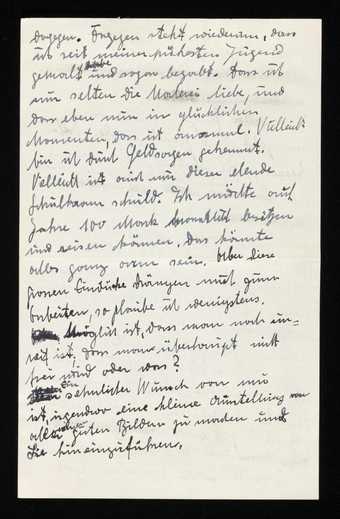 dagegen. Dagegen steht wiederum, dass
ich seit meiner frühesten Jugend
gemalt habe und sogar begabt. Dass ich
nun selten die Malerei liebe, und
das eben nur in glücklichen
Momenten, das ist anormal. Vielleicht
bin ich durch Geldsorgen gehemmt.
Vielleicht ist auch nur dieser elende
schuld. Ich möchte auf
Jahre 100 Mark monatlich besitzen
und reisen können. Das könnte
alles ganz arm sein. Aber diese
grossen Eindrücke drängen mich zum
Arbeiten, so glaube ich wenigstens.
Möglich ist, dass man noch un=
reif ist, dass man überhaupt nicht
frei wird oder was?
Ein sehnlichster Wunsch von mir
ist, irgendwo eine kleine Ausstellung von
alten guten Bildern zu machen und
Sie hineinzuführen.